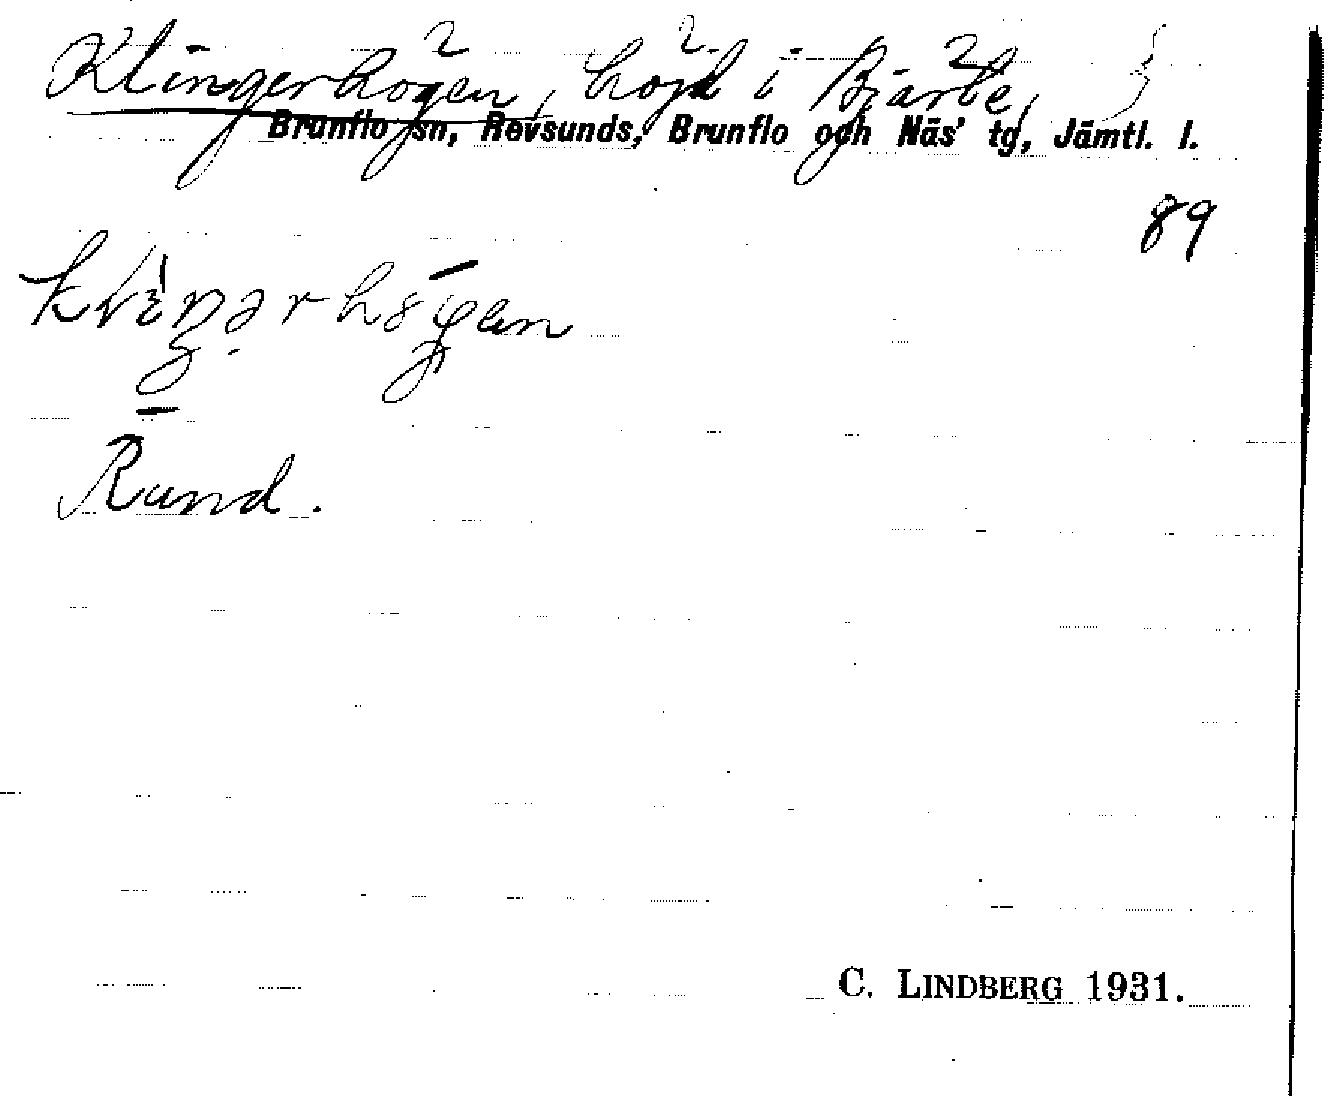 Klingerhögen, höjd i Bjärbe,
Brunflo sn, Revsunds, Brunflo och Näs' tg, Jämtl. l.
89
Rund.
C. LINDBERG 1931.